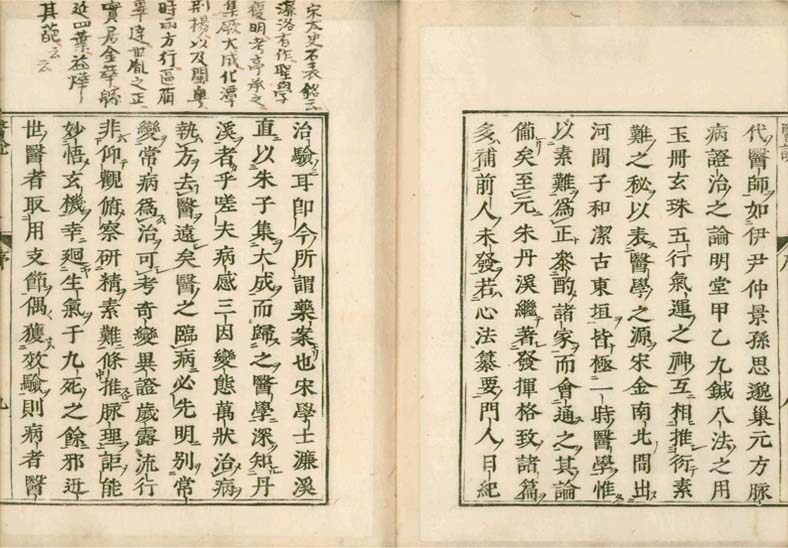 代醫師如伊尹仲景孫思邈巢元方脈
病證治之論明堂甲乙九鍼八法之用
玉冊玄珠五行氣運之神互相推衍素
難之秘以表醫學之源宋金南北間出
河間子和潔古東垣皆極一時醫學惟
以素難爲正叅酌諸家而會通之其論
備矣至元朱丹溪繼著發揮格致諸篇
多補前人未發若心法纂要門人日紀
宋太史石表銘云
濂洛有作聖學
復明考亭承之
集厥大成化潭
荊楊以及閩粵
時而方行區
畢達世胤之正
實居金華綿
延四葉益燁
其葩云云
治驗耳即今所謂藥案也宋學士濂溪
直以朱子集大成而歸之醫學深知丹
溪者乎嗟夫病感三因變態萬狀治病
執方去醫遠矣醫之臨病必先明別常
變常病爲治可考奇變異證歲露流行
非仰觀俯察研精素難條推脈理詎能
妙悟玄機幸廻生氣于九死之餘邪近
世醫者取用支節偶獲效驗則病者醫
序